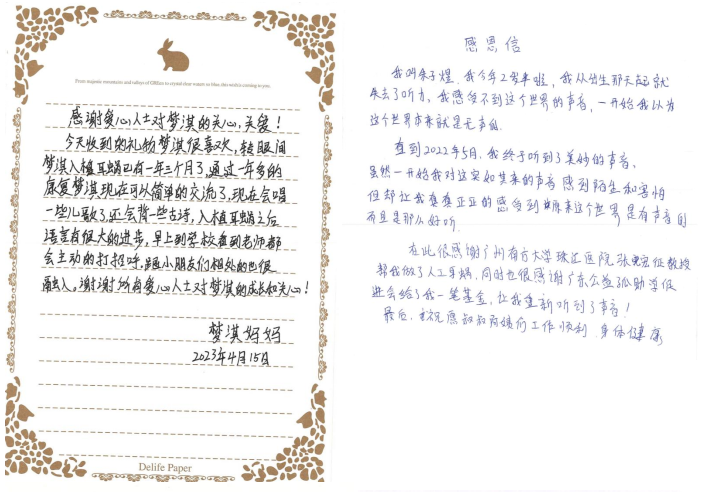 From majestic mountains and valleys of
感谢爱心人士对梦淇的关心，关爱！
今天收到的礼物梦淇很喜欢，转眼间
梦淇入植耳蜗已有一年三个月了，通过一年多的
康复梦淇现在可以简单的交流了，现在会唱
一些儿歌了，还会背一些古诗，入植耳蜗之后
语言有很大的进步，早上到学校看到老师都
会主动的打招呼，跟小朋友们相处的也很
融入。谢谢所有爱心人士对梦淇的成长和关心！
梦淇妈妈
2023年4月15日
Delife Paper
感恩信
我叫朱子煜，我今年2岁半啦，我从出生那天起就
失去了听力，我感受不到这个世界的声音，一开始我以为
这个世界本来就是无声的
直到2022年5月，我终于听到了美妙的声音，
虽然一开始我对这突如其来的声音感到陌生和害怕
但却让我真真正正的感受到原来这个世界是有声音的
而且是那么好听
在此很感谢广州南方大学珠江医院张宏征教授
帮我做了人工耳蜗，同时也很感谢广东公益孤助学促
进会给了我一笔基金，让我重新听到了声音！
最后，祝愿叔叔阿姨们工作顺利 身体健康